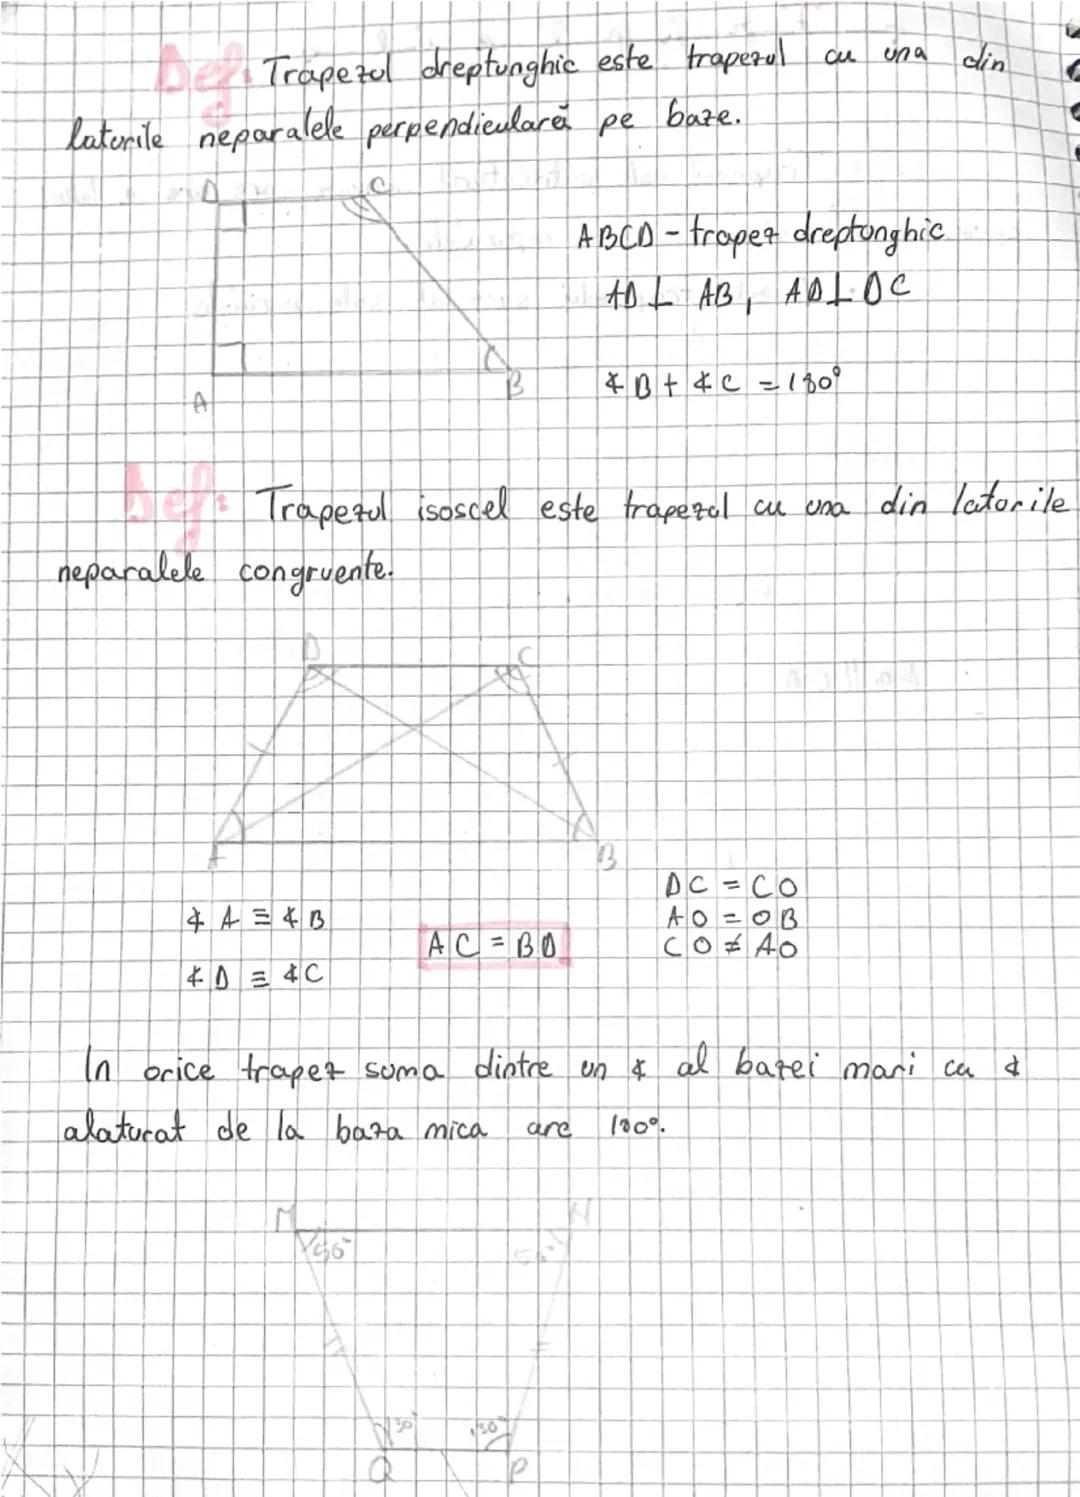 Def: Trapezul dreptunghic este trapezul cu una din
laturile neparalele perpendiculară pe baze.
D C
ABCD - trapez dreptunghic
AD ⊥ AB, AD ⊥ DC
A B
∢B + ∢C = 180°
Def: Trapezul isoscel este trapezul cu una din laturile
neparalele congruente.
D C
A B
DC = CO
∢A ≡ ∢B
AO = OB
AC = BD
CO ≠ AO
∢D ≡ ∢C
In orice trapez suma dintre un ∢ al bazei mari cu ∢
alaturat de la baza mica are 180°.
M N
50° 50°
130° 130°
Q P